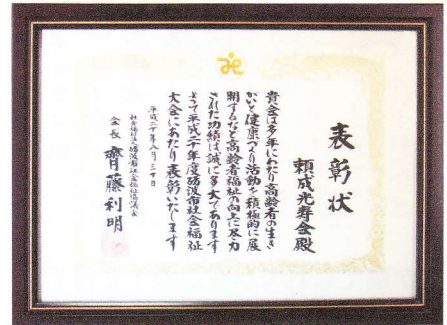 表彰状
頼成光寿会殿
貴会は多年にわたり高齢者の生き
がいと健康づくり活動を積極的に展
開するなど高齢者福祉の向上に尽力
された功績は誠に多大であります
よって平成二十年度砺波市社会福祉
大会にあたり表彰いたします
平成二十年八月三十日
社会福祉法人砺波市社会福祉協議会
会長 齊藤利明